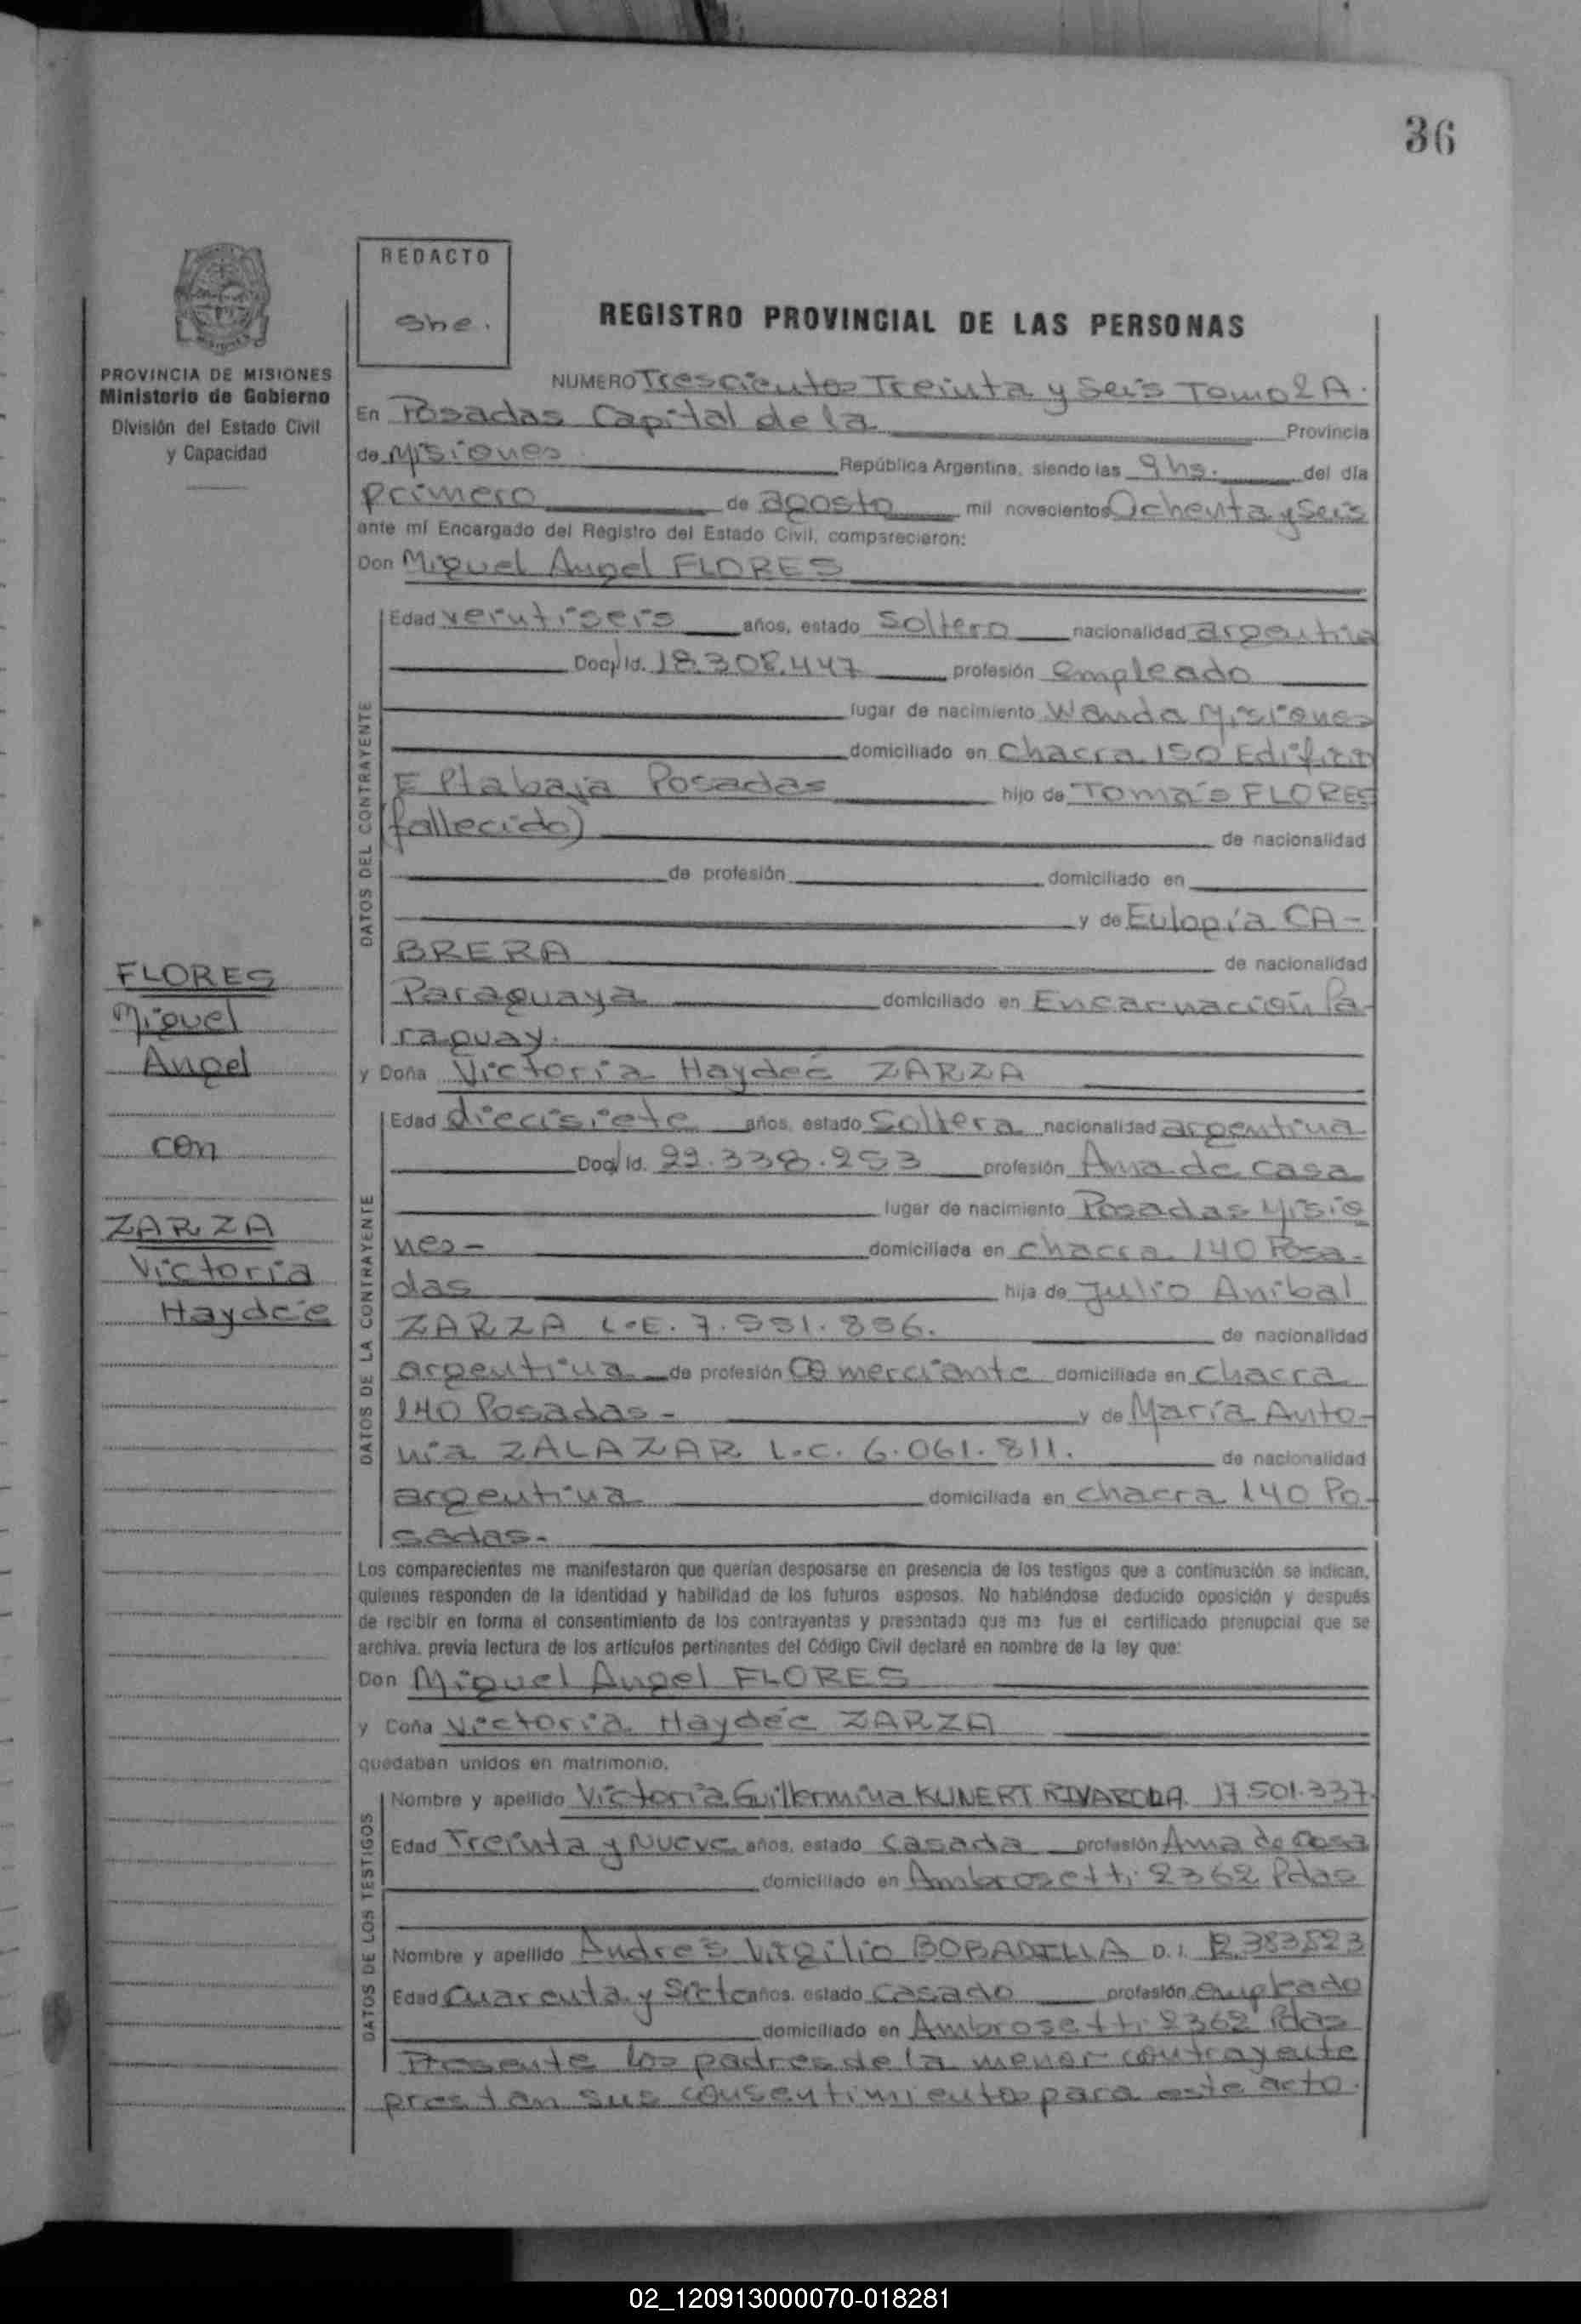 36
REDACTO
She.
PROVINCIA DE MISIONES
Ministerio de Gobierno
División del Estado Civil
y Capacidad
REGISTRO PROVINCIAL DE LAS PERSONAS
NUMERO Trescientos Treinta y Seis Tomo 2 A.
En Posadas Capital de la Provincia
de Misiones República Argentina, siendo las 9 hs. del día
primero de agosto mil novecientos Ochenta y Seis
ante mí Encargado del Registro del Estado Civil, comparecieron:
Don Miguel Angel FLORES
DATOS DEL CONTRAYENTE
Edad veintiseis años, estado Soltero nacionalidad argentina
Doc/Id. 18.308.447 profesión empleado
lugar de nacimiento Wanda Misiones
domiciliado en Chacra 150 Edificio
E Pta baja Posadas hijo de Tomás FLORES
(fallecido) de nacionalidad
de profesión domiciliado en
y de Eulogia CA-
BRERA de nacionalidad
Paraguaya domiciliado en Encarnación Pa-
raguay.
y Doña Victoria Haydeé ZARZA
DATOS DE LA CONTRAYENTE
Edad diecisiete años, estado Soltera nacionalidad argentina
Doc/Id. 22.338.253 profesión Ama de casa
lugar de nacimiento Posadas Misio
nes- domiciliada en chacra 140 Posa-
das hija de Julio Anibal
ZARZA L.E. de nacionalidad
argentina de profesión Comerciante domiciliada en chacra
140 Posadas- y de María Anto-
nia ZALAZAR L.C. 6.061.811. de nacionalidad
argentina domiciliada en chacra 140 Po-
sadas-
Los comparecientes me manifestaron que querían desposarse en presencia de los testigos que a continuación se indican,
quienes responden de la identidad y habilidad de los futuros esposos. No habiéndose deducido oposición y después
de recibir en forma el consentimiento de los contrayentes y presentado que me fue el certificado prenupcial que se
archiva, previa lectura de los artículos pertinentes del Código Civil declaré en nombre de la ley que:
Don Miguel Angel FLORES
y Doña Victoria Haydeé ZARZA
quedaban unidos en matrimonio.
DATOS DE LOS TESTIGOS
Nombre y apellido Victoria Guillermina KUNERT RIVAROLA 17.501.337
Edad Treinta y Nueve años, estado casada profesión Ama de Casa
domiciliado en Ambrosetti 2362 Pdas
Nombre y apellido Andres Virgilio BOBADILLA D.I.
Edad Cuarenta y Siete años, estado casado profesión empleado
domiciliado en Ambrosetti 2362 Pdas
Presente los padres de la menor contrayente
prestan sus consentimientos para este acto.
FLORES
Miguel
Angel
con
ZARZA
Victoria
Haydeé
02_120913000070-018281